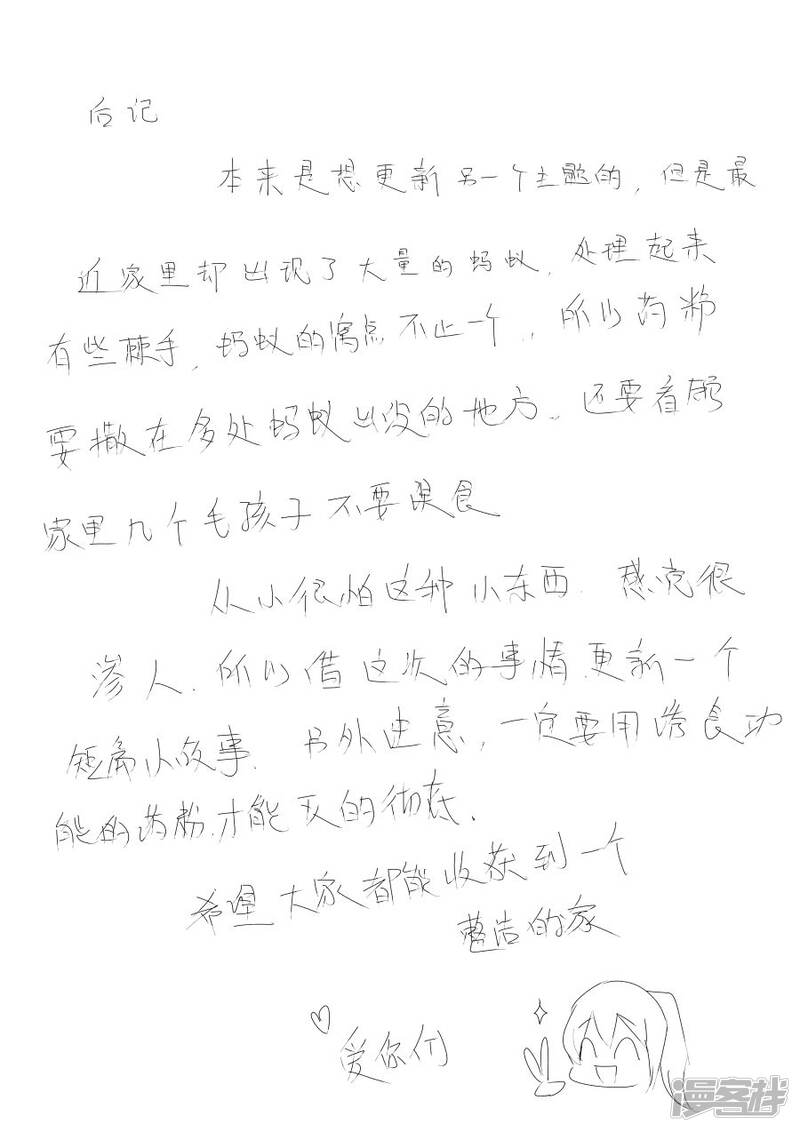 后记
本来是想更新另一个主题的，但是最
近家里却出现了大量的蚂蚁，处理起来
有些棘手，蚂蚁的窝点不止一个，所以药粉
要撒在多处蚂蚁出没的地方，还要看顾
家里几个毛孩子不要误食
从小很怕这种小东西，感觉很
渗人，所以借这次的事情更新一个
短篇小故事，另外注意，一定要用诱食功
能的药粉，才能灭的彻底，
希望大家都能收获到一个
整洁的家
爱你们
漫客栈